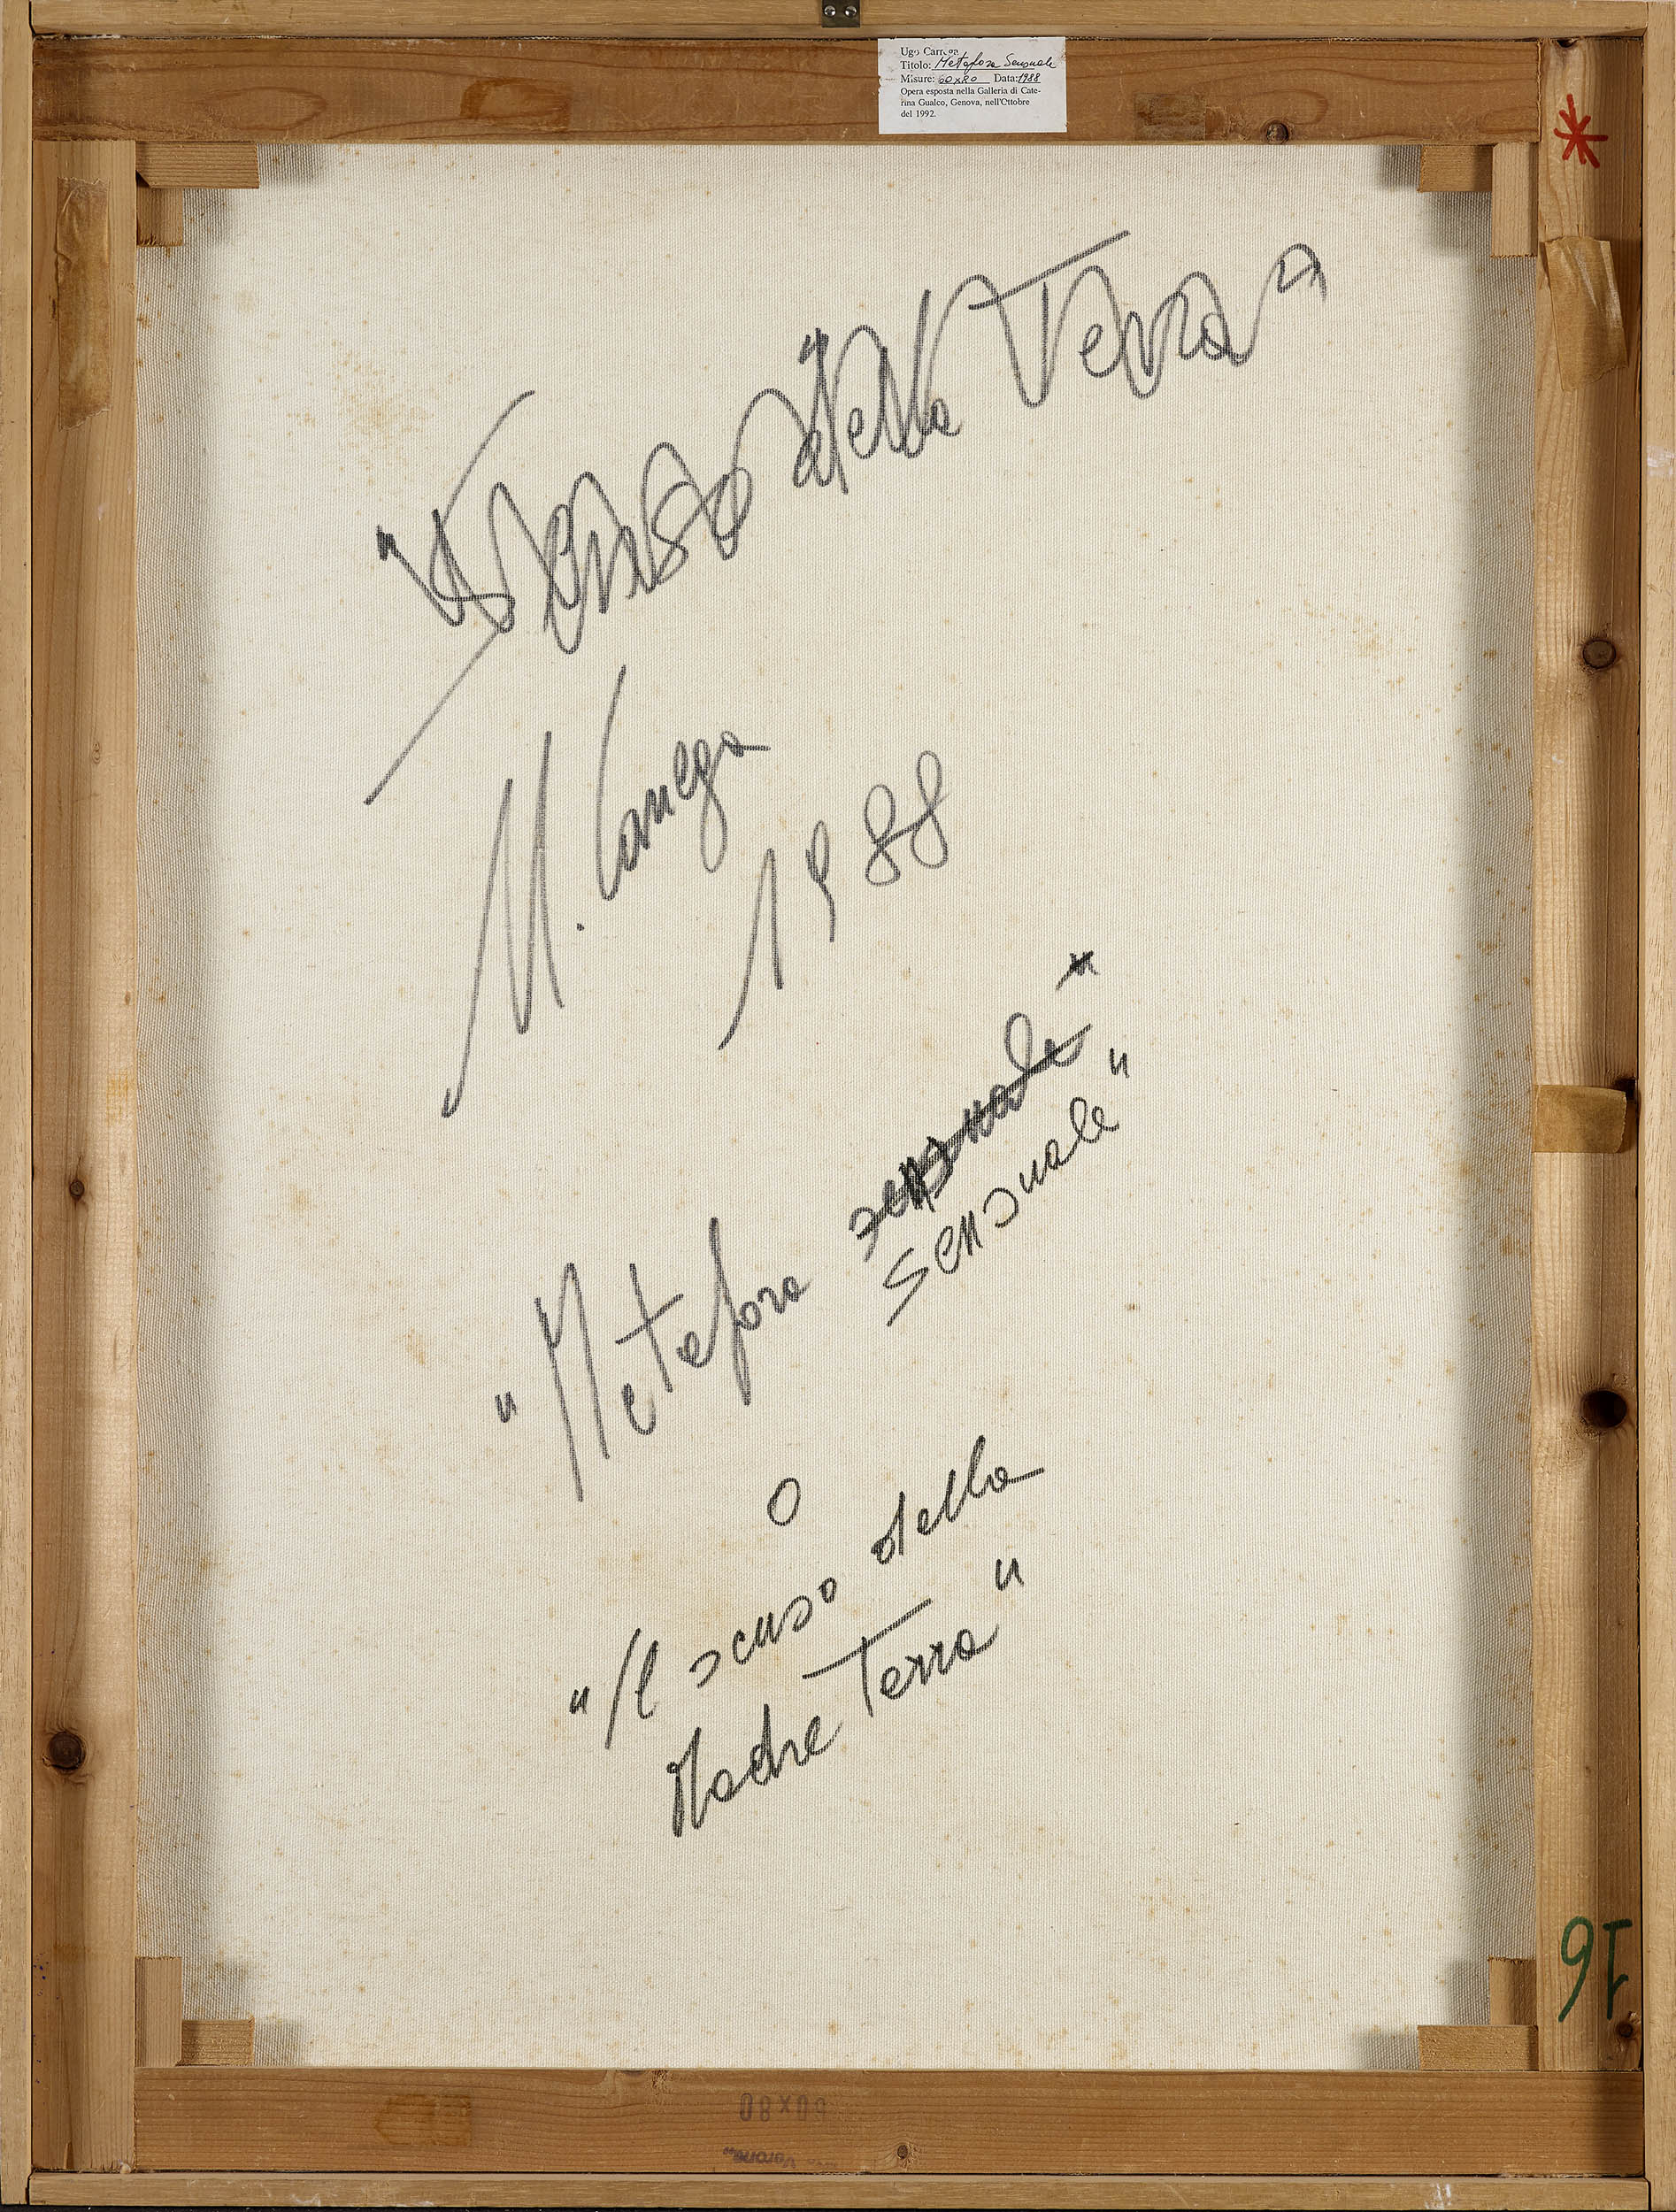 Ugo Carrega
Titolo: Metafora Sensuale
Misure: 60x80 Data: 1988
Opera esposta nella Galleria di Cate-
rina Gualco, Genova, nell'Ottobre
del 1992.
"Il senso della Terra"
U. Carrega
1988
"Metafora sensuale
sensuale"
o
"Il senso della
Madre Terra"
16
60X80